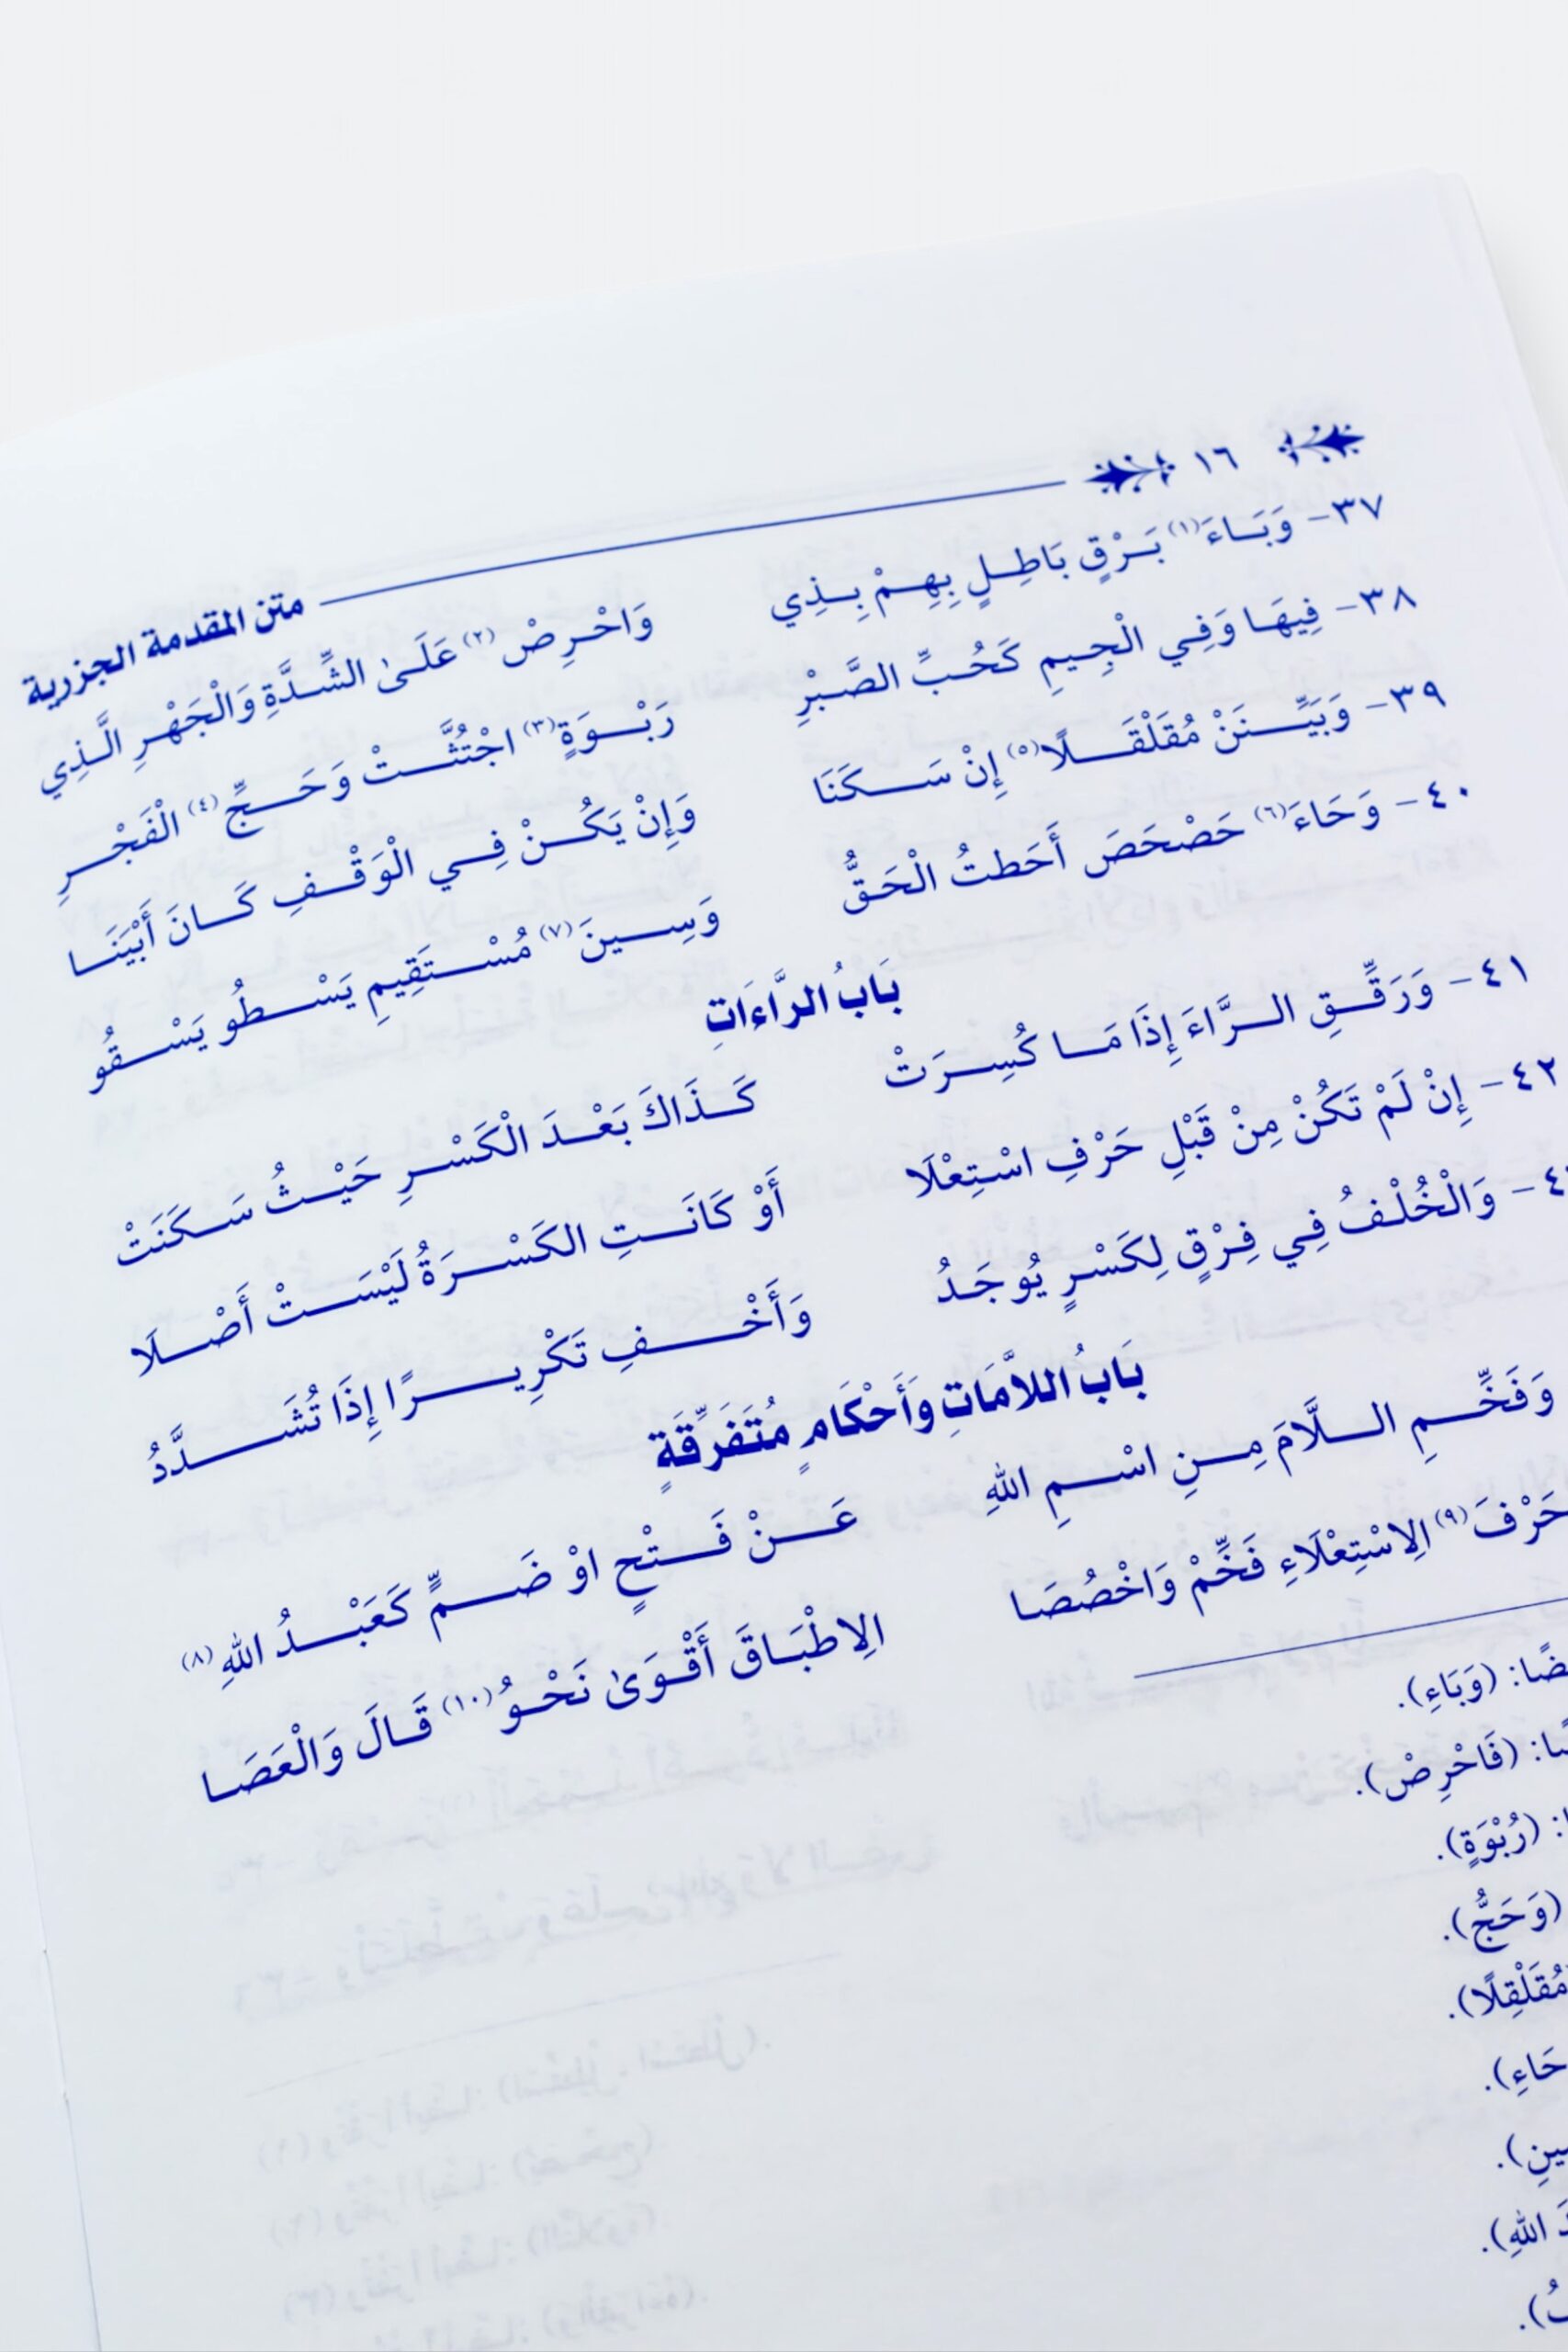 ١٦ متن المقدمة الجزرية
٣٧- وَبَاءَ(١) بَرْقٍ بَاطِلٍ بِهِمْ بِذِي وَاحْرِصْ(٢) عَلَىٰ الشِّدَّةِ وَالْجَهْرِ الَّذِي
٣٨- فِيهَا وَفِي الْجِيمِ كَحُبِّ الصَّبْرِ رَبْوَةٍ(٣) اجْتُثَّتْ وَحَجِّ(٤) الْفَجْرِ
٣٩- وَبَيِّنَنْ مُقَلْقَلًا(٥) إِنْ سَكَنَا وَإِنْ يَكُنْ فِي الْوَقْفِ كَانَ أَبْيَنَا
٤٠- وَحَاءَ(٦) حَصْحَصَ أَحَطتُ الْحَقُّ وَسِينَ(٧) مُسْتَقِيمِ يَسْطُو يَسْقُو
بَابُ الرَّاءَاتِ
٤١- وَرَقِّقِ الرَّاءَ إِذَا مَا كُسِرَتْ كَذَاكَ بَعْدَ الْكَسْرِ حَيْثُ سَكَنَتْ
٤٢- إِنْ لَمْ تَكُنْ مِنْ قَبْلِ حَرْفِ اسْتِعْلَا أَوْ كَانَتِ الكَسْرَةُ لَيْسَتْ أَصْلَا
- وَالْخُلْفُ فِي فِرْقٍ لِكَسْرٍ يُوجَدُ وَأَخْفِ تَكْرِيرًا إِذَا تُشَدَّدُ
بَابُ اللَّامَاتِ وَأَحْكَامٍ مُتَفَرِّقَةٍ
وَفَخِّمِ اللَّامَ مِنِ اسْمِ اللهِ عَنْ فَتْحٍ اوْ ضَمٍّ كَعَبْدُ اللهِ(٨)
حَرْفَ(٩) الِاسْتِعْلَاءِ فَخِّمْ وَاخْصُصَا الِاطْبَاقَ أَقْوَىٰ نَحْوُ(١٠) قَالَ وَالْعَصَا
(وَبَاءِ).
(فَاحْرِصْ).
(رُبْوَةٍ).
(وَحَجُّ).
مُقَلْقِلًا).
حَاءِ).
اللهِ).